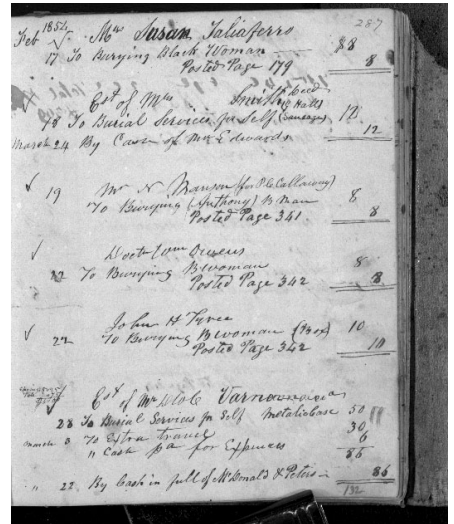 287
Feb 1854 Mrs Susan Taliaferro
17 To Burying Black Woman $8
Posted Page 179 8
Est of Mrs Smith Decd
18 To Burial Services for Self 12
March 24 By Cash of Mr Edwards 12
19 Mr N Manson (for P Callaway)
To Burying (Anthony) B Man 8
Posted Page 341 8
Doct Wm Owens
22 To Burying B woman 8
Posted Page 342 8
John H Tyree
22 To Burying B woman (Box) 10
Posted Page 342 10
Est of Mr
28 To Burial Services for Self Metalic Case 50
March 3 To Extra travel 30
" Cash pa for Expences 6
86
" 22 By Cash in full of McDonald & Peters 86
192